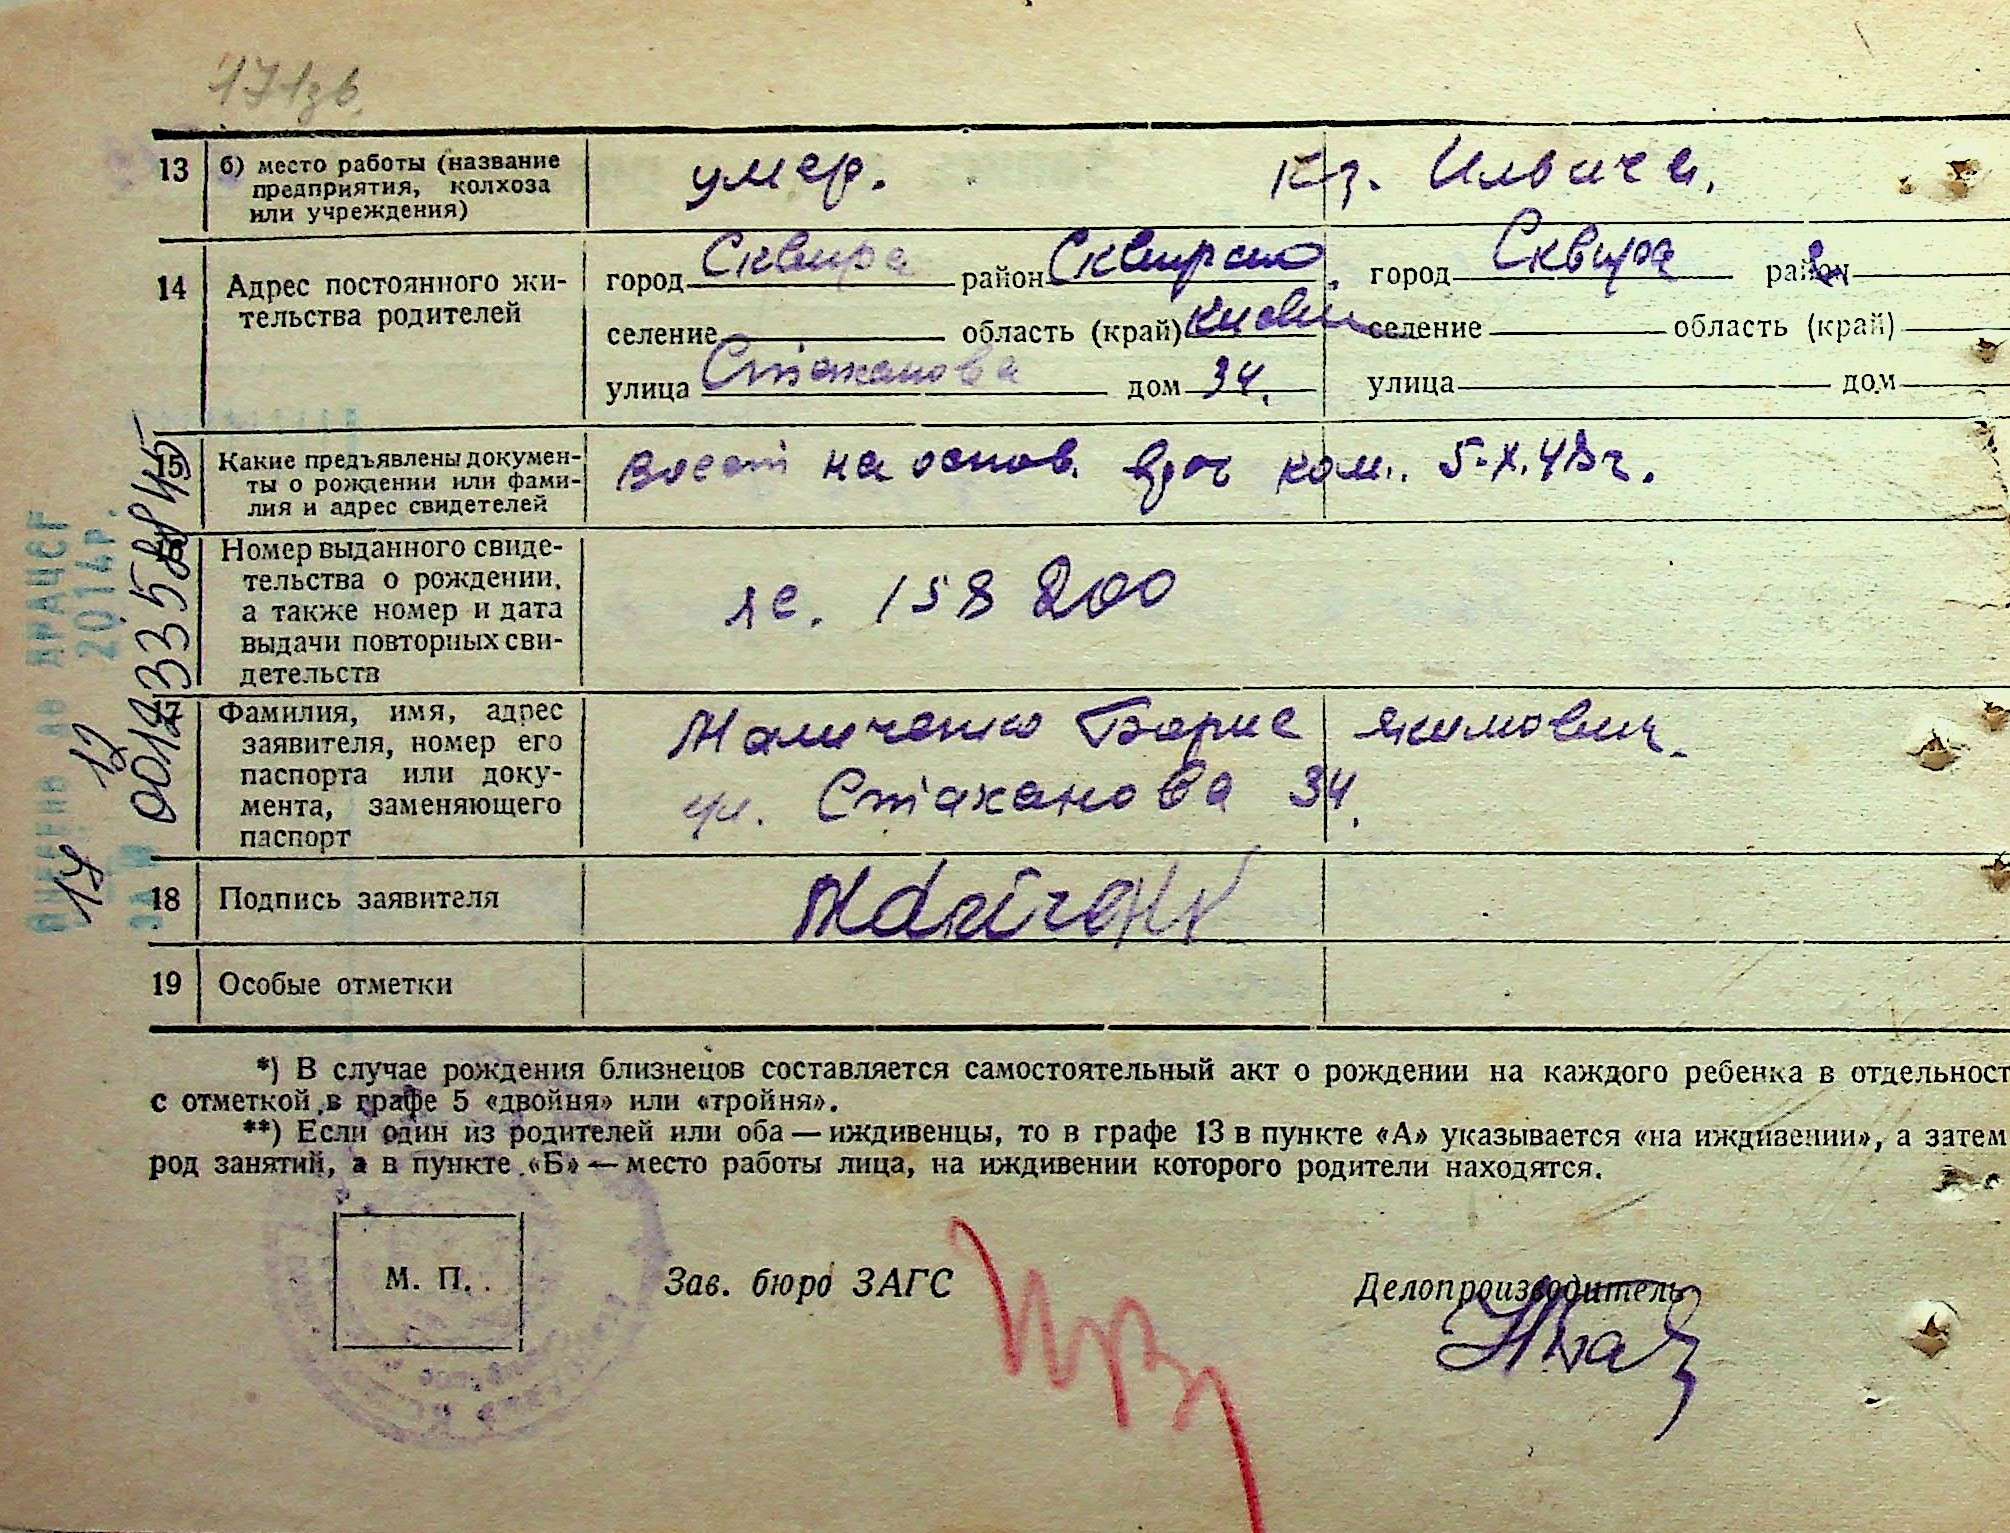 171зв.
13 б) место работы (название умер. Кз. Ильича.
предприятия, колхоза
или учреждения)
14 Адрес постоянного жи-
тельства родителей
город Сквира район Сквирско город Сквира район
селение область (край) Киевск селение область (край)
улица Стаханова дом 34. улица дом
15 Какие предъявлены докумен-
ты о рождении или фами-
лия и адрес свидетелей
Восст на основ. врач ком. 5-X.48г.
16 Номер выданного свиде-
тельства о рождении,
а также номер и дата
выдачи повторных сви-
детельств
158200
17 Фамилия, имя, адрес
заявителя, номер его
паспорта или доку-
мента, заменяющего
паспорт
Борис Якимович.
ул. Стаханова 34.
18 Подпись заявителя
19 Особые отметки
*) В случае рождения близнецов составляется самостоятельный акт о рождении на каждого ребенка в отдельност
с отметкой в графе 5 «двойня» или «тройня».
**) Если один из родителей или оба — иждивенцы, то в графе 13 в пункте «А» указывается «на иждивении», а затем
род занятий, а в пункте «Б» — место работы лица, на иждивении которого родители находятся.
М. П.
Зав. бюро ЗАГС Делопроизводитель
ДРАЦСГ
2014р.
17 12